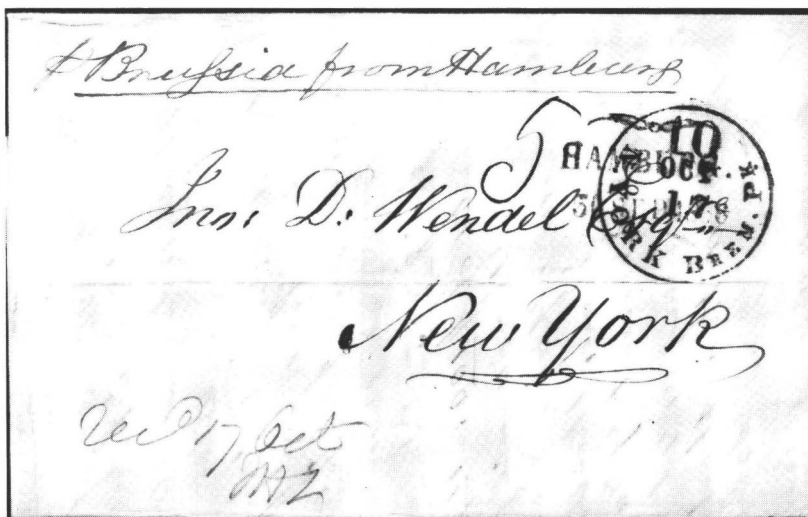 Prussia from Hamburg
5
10
OCT
17
YORK BREM. PK
Jno: D: Wendel Esqr
New York
Recd 17 Oct